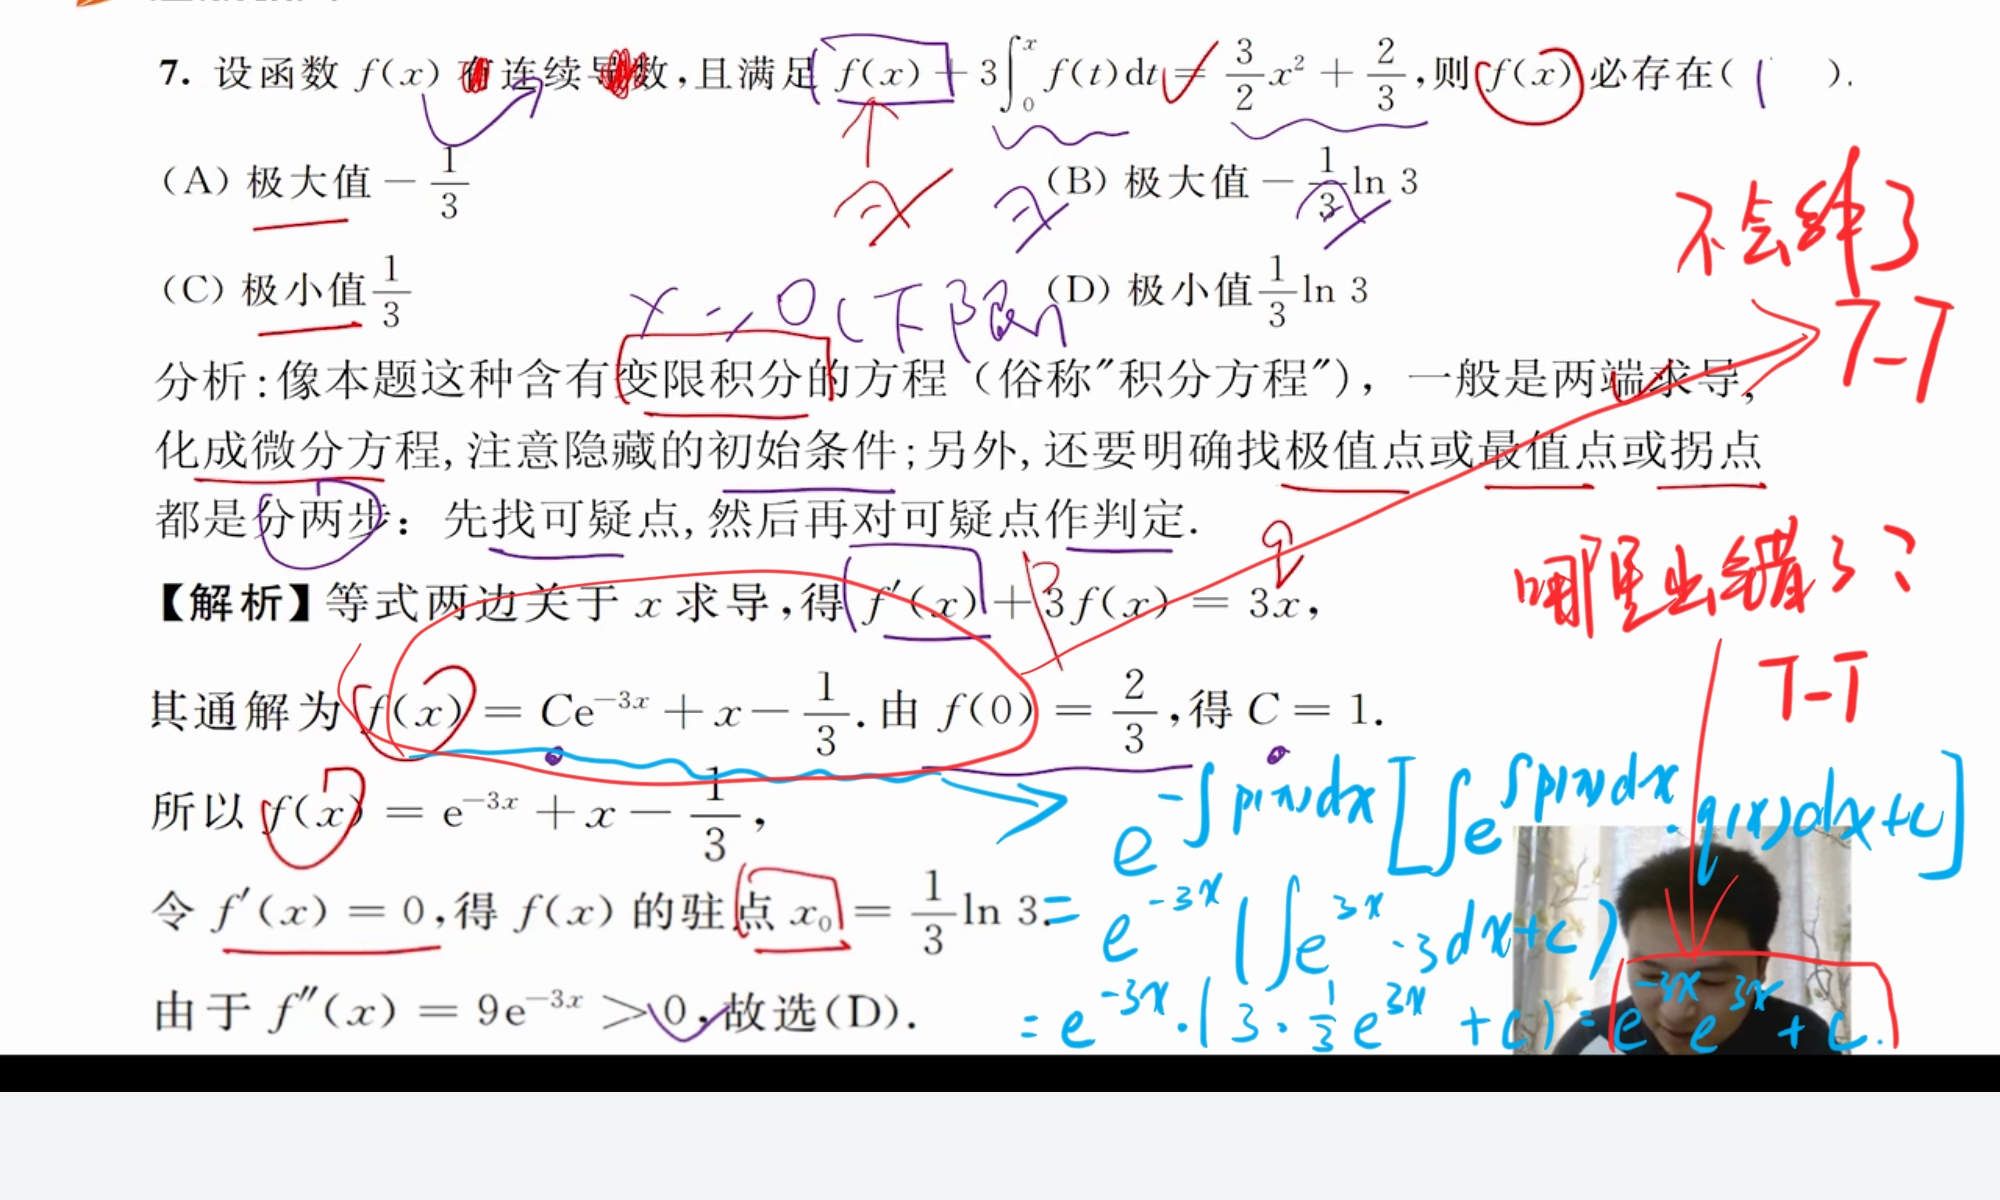 7. 设函数 f(x) 有连续导数,且满足 f(x) + 3∫₀ˣ f(t)dt = 3/2 x² + 2/3 ,则 f(x) 必存在( ).
(A) 极大值 − 1/3 (B) 极大值 − 1/3 ln 3
(C) 极小值 1/3 (D) 极小值 1/3 ln 3
不会绊了
T-T
x=0(下限)
分析:像本题这种含有变限积分的方程(俗称"积分方程"),一般是两端求导,
化成微分方程,注意隐藏的初始条件;另外,还要明确找极值点或最值点或拐点
都是分两步:先找可疑点,然后再对可疑点作判定.
q
哪里出错了?
T-T
【解析】等式两边关于 x 求导,得 f′(x) + 3f(x) = 3x,
其通解为 f(x) = Ce⁻³ˣ + x − 1/3 . 由 f(0) = 2/3 ,得 C = 1.
所以 f(x) = e⁻³ˣ + x − 1/3 ,
e^(-∫p(x)dx) [∫e^(∫p(x)dx) · q(x)dx+c]
令 f′(x) = 0,得 f(x) 的驻点 x₀ = 1/3 ln 3.
= e^(-3x) (∫e^(3x) ·3dx+c)
由于 f″(x) = 9e⁻³ˣ > 0,故选(D).
= e^(-3x) · (3 · 1/3 e^(3x) + c) = e^(-3x) e^(3x) + c.